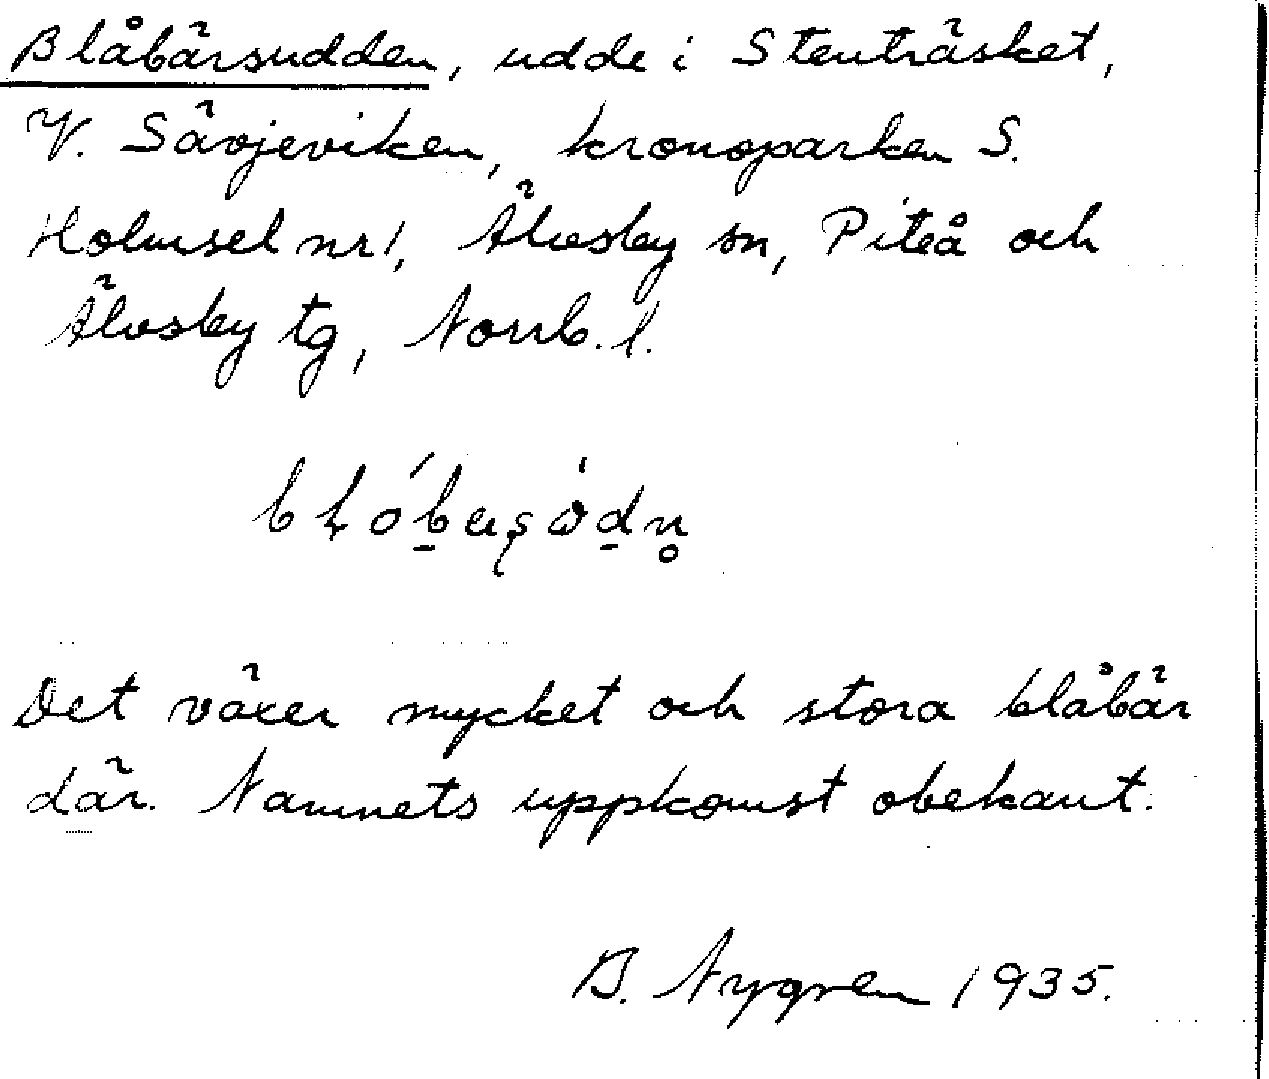 Blåbärsudden, udde i Stenträsket,
V. Sävjeviken, kronoparken S.
Holmsel nr 1, Älvsby sn, Piteå och
Älvsby tg, Norrb. l.
Det växer mycket och stora blåbär
där. Namnets uppkomst obekant.
B. Nygren 1935.